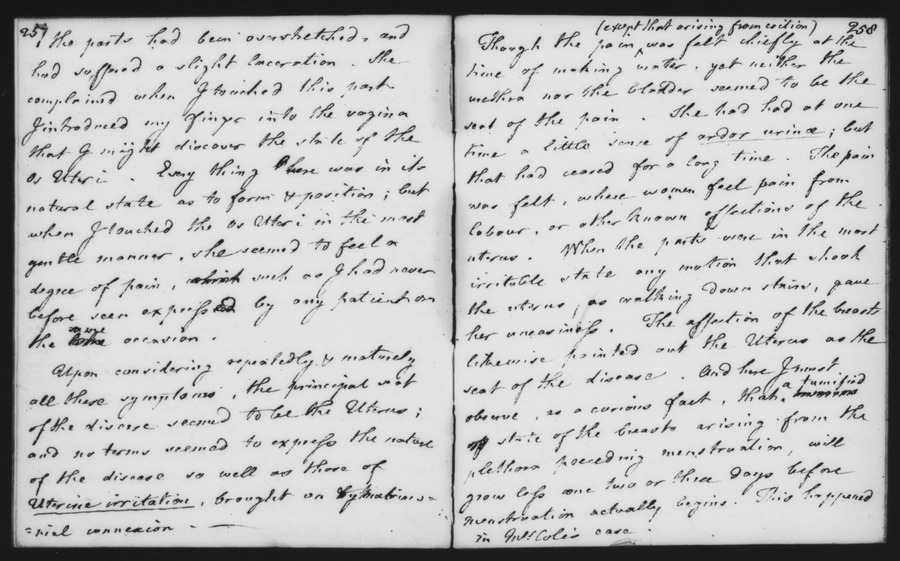 257
the parts had been overstretched, and
had suffered a slight laceration. She
complained when I touched this part
I introduced my finger into the vagina
that I might discover the state of the
Os Uteri. Every thing here was in its
natural state as to form & position; but
when I touched the os Uteri in the most
gentle manner, she seemed to feel a
degree of pain, which such as I had never
before seen expressed by any patient on
the same occasion.
Upon considering repeatedly & maturely
all these symptoms, the principal seat
of the disease seemed to be the Uterus;
and no terms seemed to express the nature
of the disease so well as those of
Uterine irritation, brought on by matrimo=
=nial connexion.
258
(except that arising from coition)
Though the pain was felt chiefly at the
time of making water, yet neither the
urethra nor the bladder seemed to be the
seat of the pain. She had had at one
time a little sense of ardor urinæ; but
that had ceased for a long time. The pain
was felt, where women feel pain from
labour, or other known affections of the
uterus. When the parts were in the most
irritable state any motion that shook
the uterus, as walking down stairs, gave
her uneasiness. The affection of the breasts
likewise pointed out the Uterus as the
seat of the disease. And here I must
observe, as a curious fact, that a tumified
state of the breasts arising from the
plethora preceding menstruation, will
grow less one two or three days before
menstruation actually begins. This happened
in Mrs Cole's case.